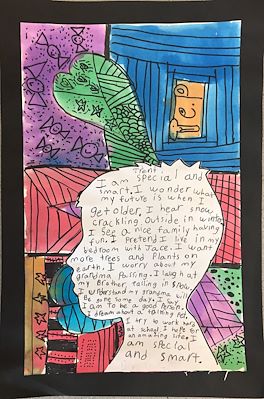 Trent
I am special and
smart. I wonder what
my future is when I
get older. I hear snow
crackling outside in winter
I see a nice family having
fun. I pretend I live in my
bedroom with Jace. I want
more trees and plants on
earth. I worry about my
grandma passing. I laugh at
my brother falling in snow.
I understand my grandma will
be gone some day. I
am to be a good person.
I dream about a talking pet.
I try to work hard
at school. I hope for
an amazing sister. I
am special
and smart.